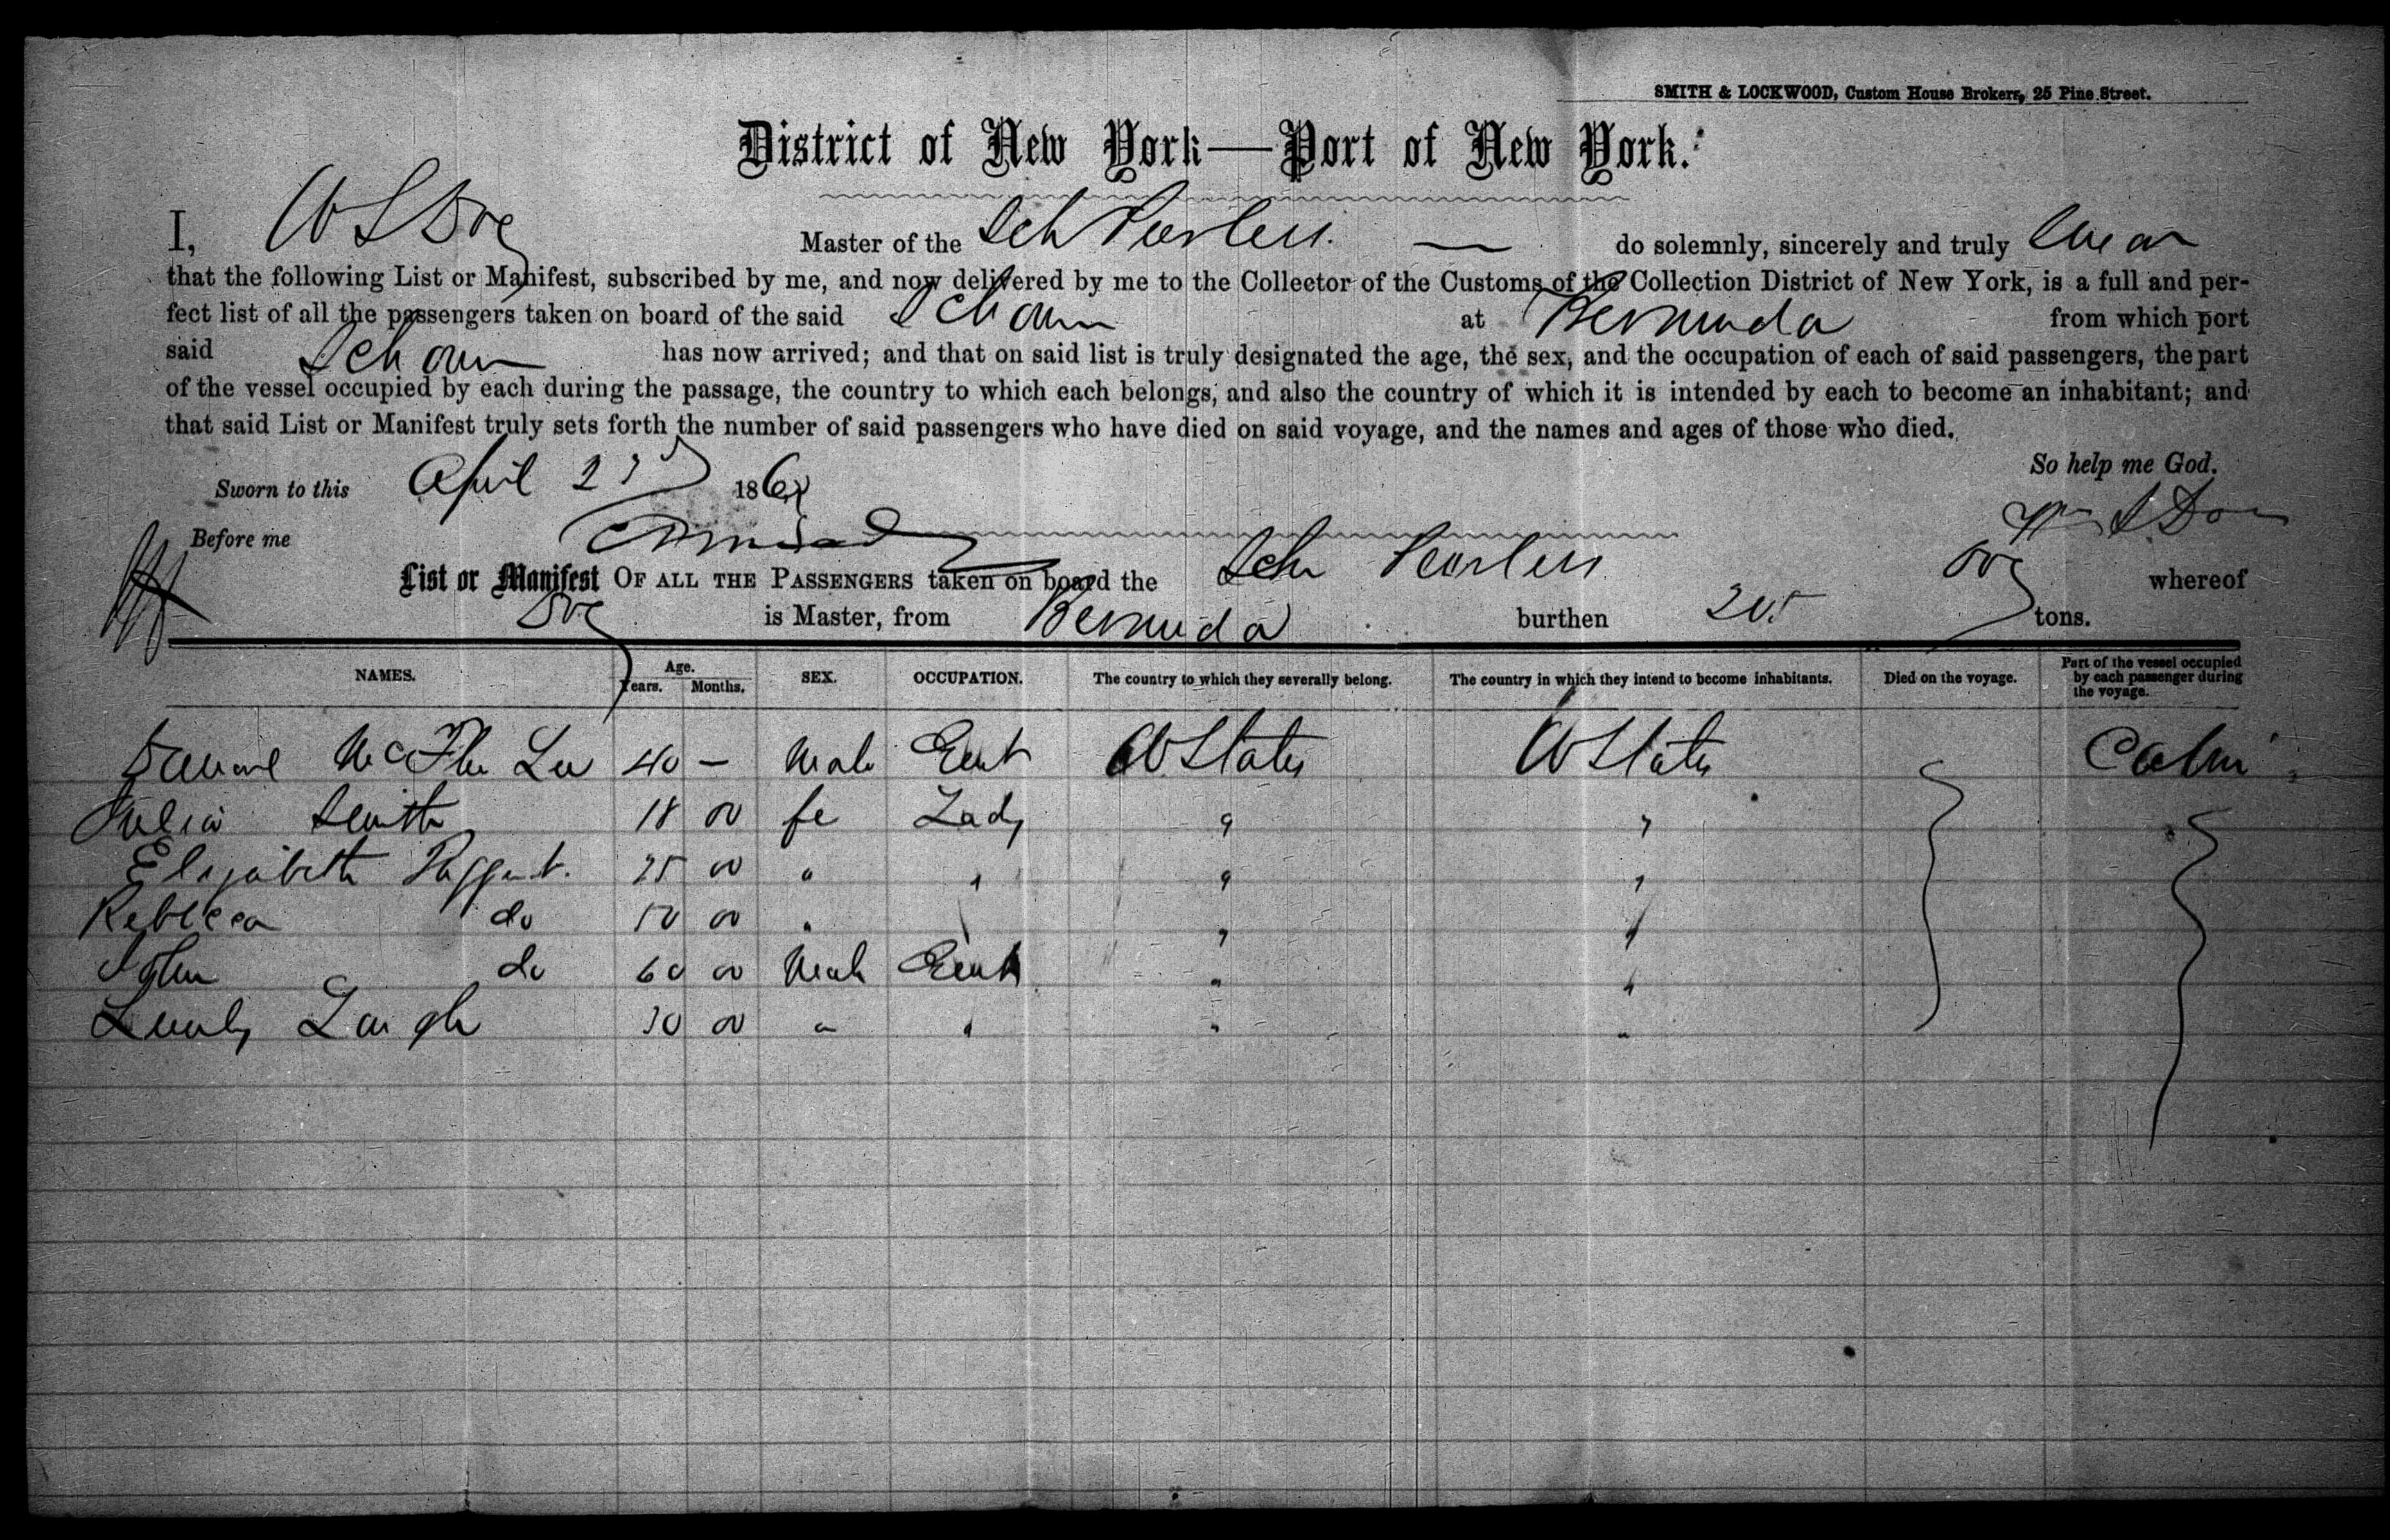 SMITH & LOCKWOOD, Custom House Brokers, 25 Pine Street.
District of New York—Port of New York.
I, W S Doe Master of the Sch Peerless — do solemnly, sincerely and truly swear
that the following List or Manifest, subscribed by me, and now delivered by me to the Collector of the Customs of the Collection District of New York, is a full and per-
fect list of all the passengers taken on board of the said Schooner at Bermuda from which port
said Schooner has now arrived; and that on said list is truly designated the age, the sex, and the occupation of each of said passengers, the part
of the vessel occupied by each during the passage, the country to which each belongs, and also the country of which it is intended by each to become an inhabitant; and
that said List or Manifest truly sets forth the number of said passengers who have died on said voyage, and the names and ages of those who died.
So help me God.
Sworn to this April 186
Before me
List or Manifest OF ALL THE PASSENGERS taken on board the Schr Peerless whereof
is Master, from Bermuda burthen tons.
NAMES. Age. Years. Months. SEX. OCCUPATION. The country to which they severally belong. The country in which they intend to become inhabitants. Died on the voyage. Part of the vessel occupied by each passenger during the voyage.
40 — Male Gent U States U States Cabin
Julia Smith 18 00 fe Lady " "
Elizabeth 25 00 " " " "
Rebecca do 50 00 " " "
John do 60 00 Male Gent " "
30 00 " " " "